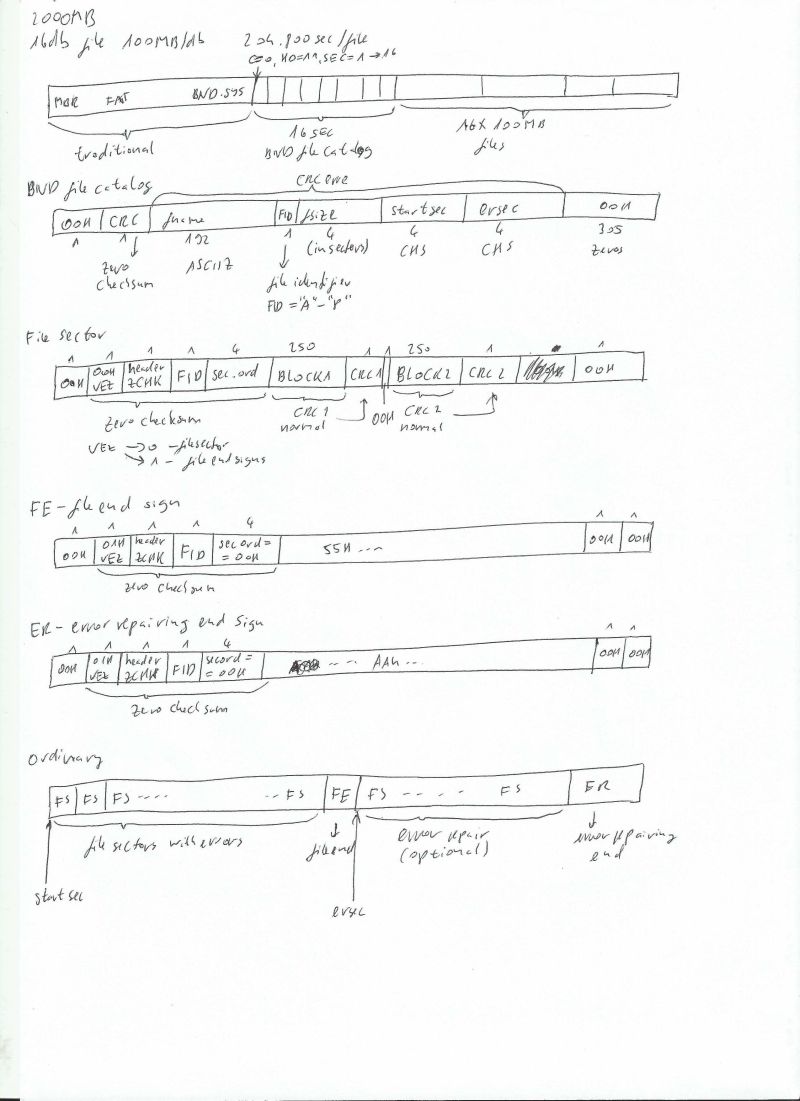 2000MB
16db file 100MB/db 204.800sec/file
C=0, HD=1, SEC=1 → 16
MBR FAT BND.SYS
traditional 16 sec 16 x 100MB
BND file catalog files
BND file catalog CRC erre
00H CRC fname FID fsize startsec ersec 00H
1 1 192 1 4 4 4 305
zero ASCIIZ (in sectors) CHS CHS zeros
checksum file identifier
FID = "A" - "P"
File sector
1 1 1 1 4 250 1 1 250 1 1
00H 00H VEZ header ZCHK FID sec.ord BLOCK1 CRC1 BLOCK2 CRC2 00H
zero checksum CRC1 normal 00H CRC2 normal
VEZ → 0 - filesector
→ 1 - file end signs
FE - file end sign
1 1 1 1 4 1 1
00H 01H VEZ header ZCHK FID secord= =00H 55H ... 00H 00H
zero checksum
ER - error repairing end sign
1 1 1 1 4 1 1
00H 01H VEZ header ZCHK FID secord= =00H -- AAH ... 00H 00H
zero checksum
Ordinary
FS FS FS ---- --FS FE FS ---- FS ER
file sectors with errors file end error repair (optional) error repairing end
startsec
ersec